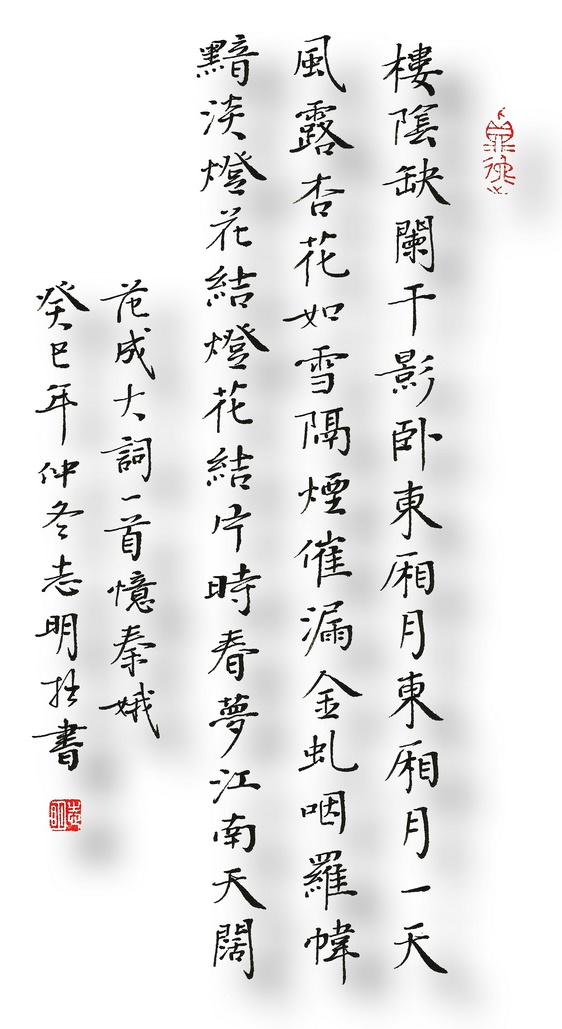 樓陰缺闌干影卧東厢月東厢月一天
風露杏花如雪隔煙催漏金虬咽羅幃
黯淡燈花結燈花結片時春夢江南天闊
范成大詞一首憶秦娥
癸巳年仲冬志明拙書
志明